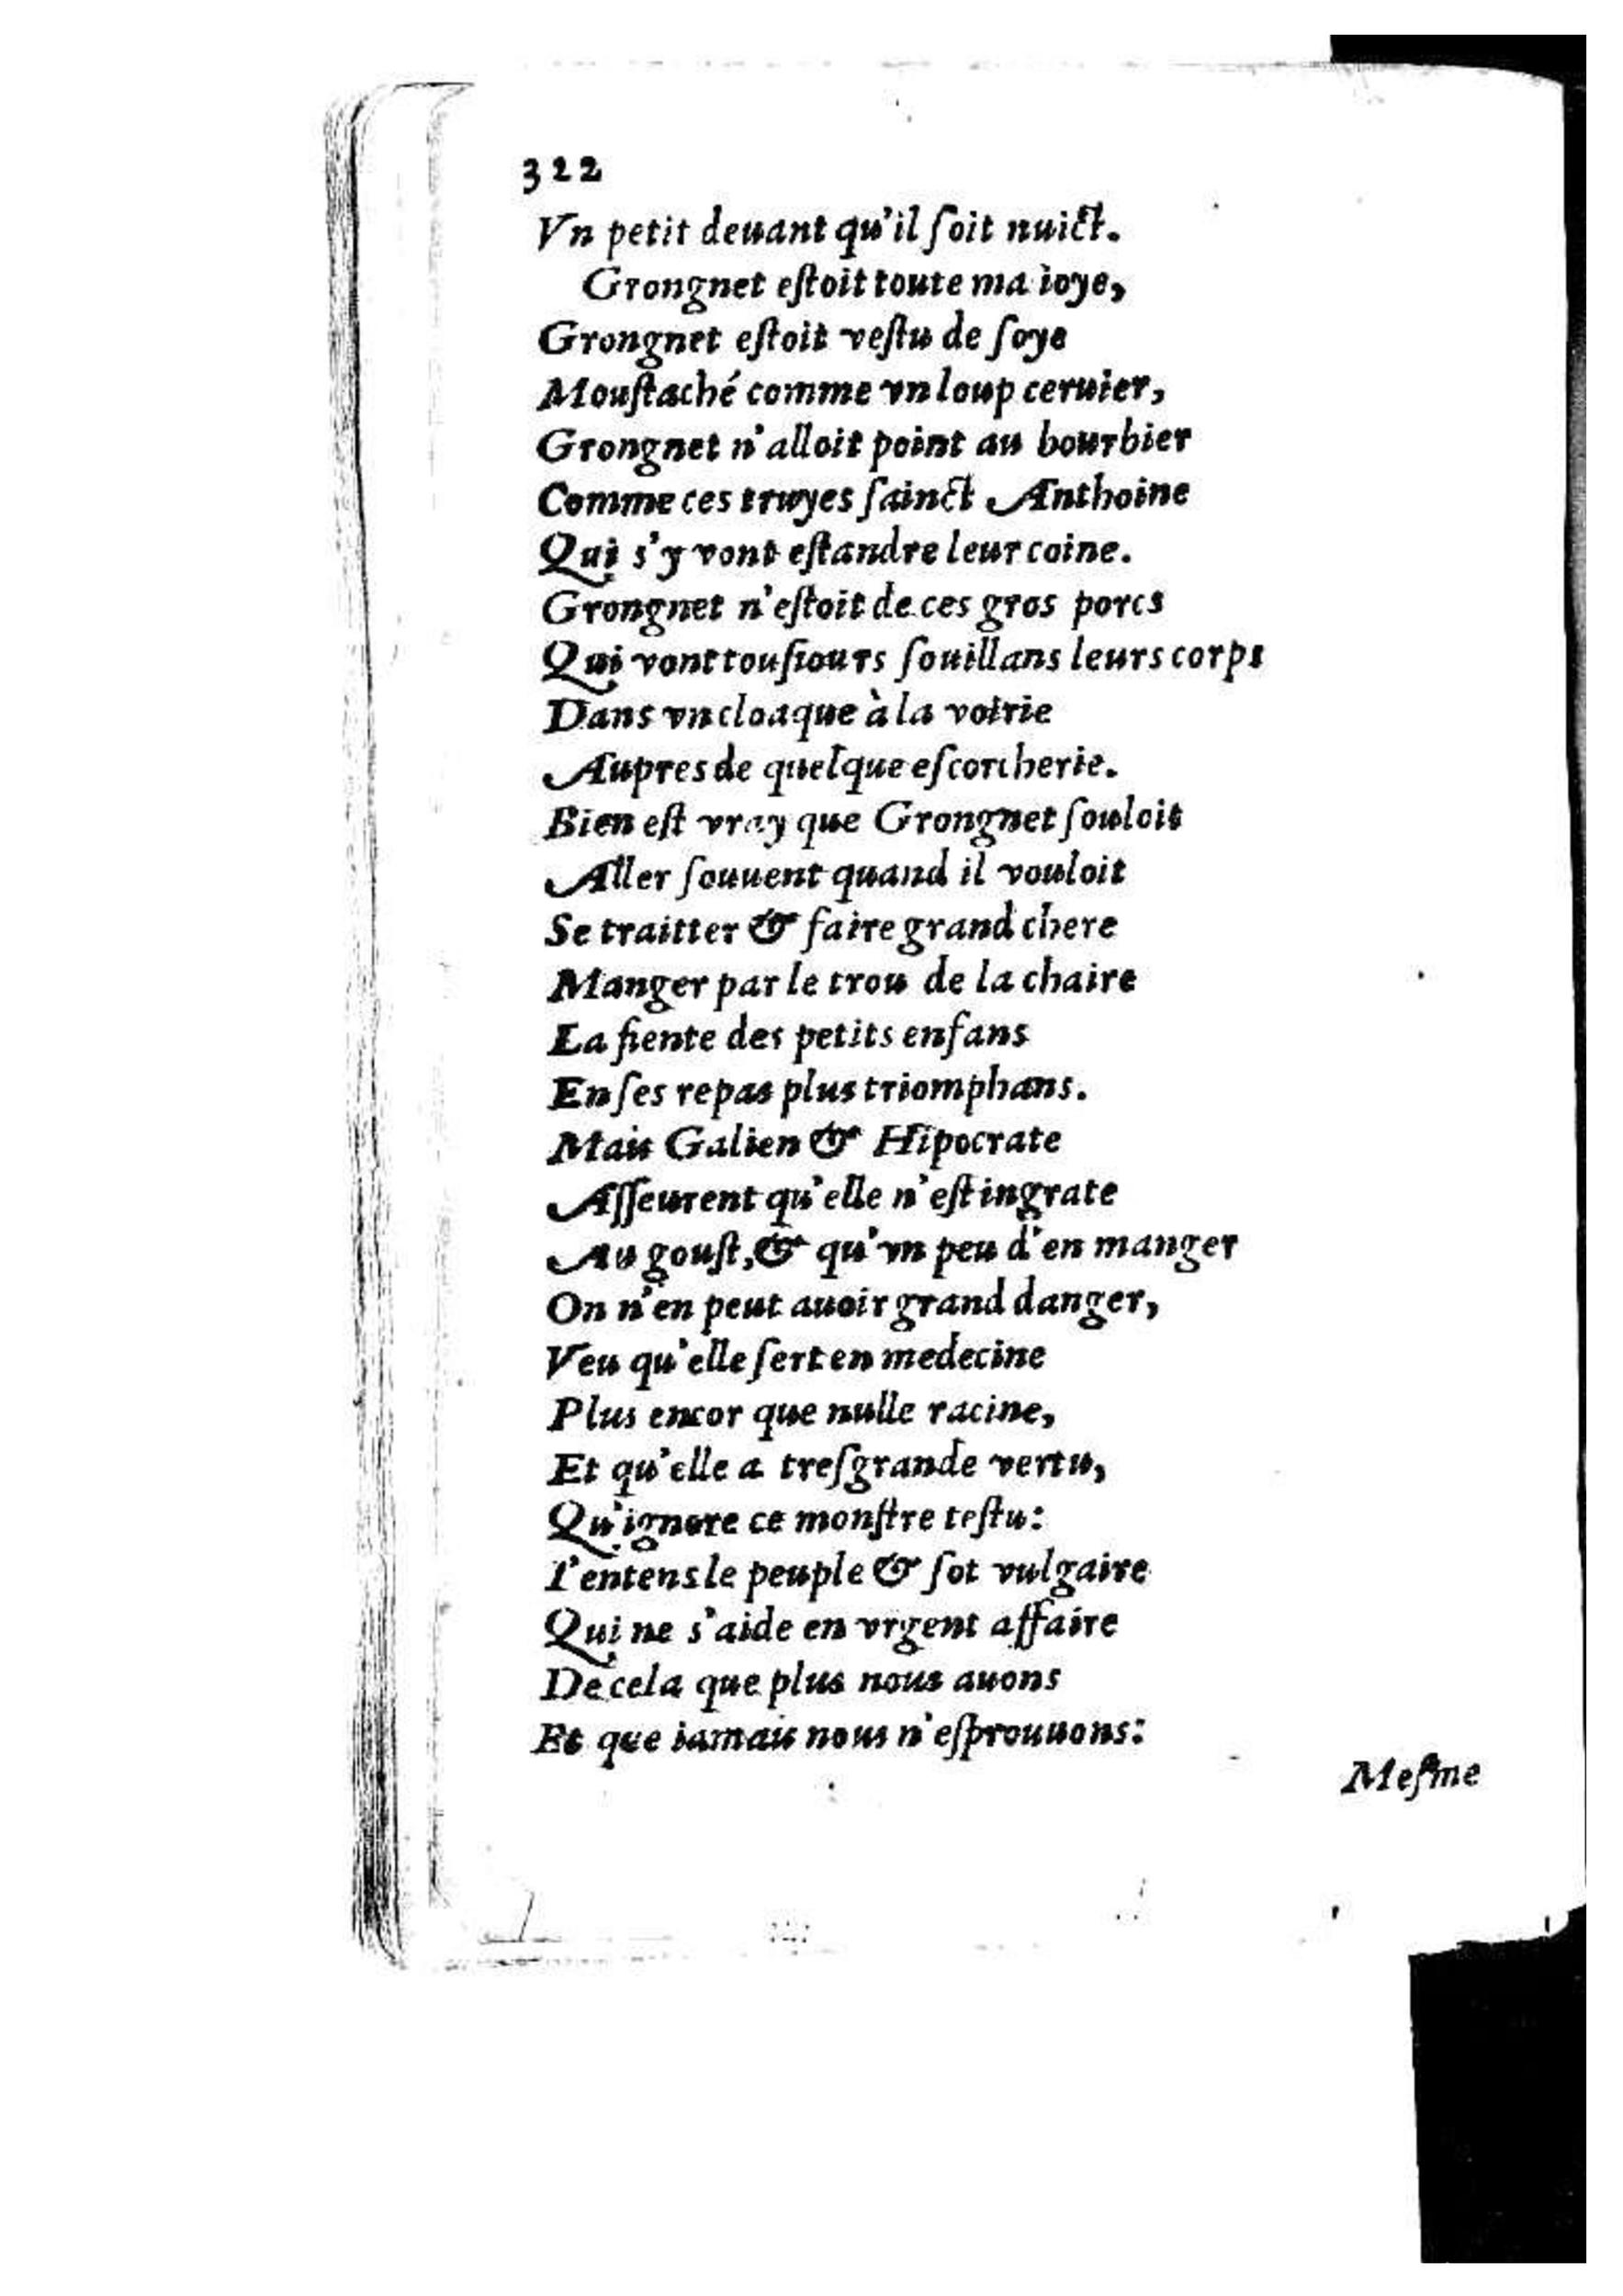 322
Vn petit deuant qu'il ſoit nuict.
Grongnet eſtoit toute ma ioye,
Grongnet eſtoit veſtu de ſoye
Mouſtaché comme vn loup ceruier,
Grongnet n'alloit point au bourbier
Comme ces truyes ſainct Anthoine
Qui s'y vont eſtandre leur coine.
Grongnet n'eſtoit de ces gros porcs
Qui vont touſiours ſouillans leurs corps
Dans vn cloaque à la voirie
Aupres de quelque eſcorcherie.
Bien eſt vray que Grongnet ſouloit
Aller ſouuent quand il vouloit
Se traitter & faire grand chere
Manger par le trou de la chaire
La fiente des petits enfans
En ſes repas plus triomphans.
Mais Galien & Hipocrate
Aſſeurent qu'elle n'eſt ingrate
Au gouſt, & qu'vn peu d'en manger
On n'en peut auoir grand danger,
Veu qu'elle ſert en medecine
Plus encor que nulle racine,
Et qu'elle a treſgrande vertu,
Qu'ignore ce monſtre teſtu:
I'entens le peuple & ſot vulgaire
Qui ne s'aide en vrgent affaire
De cela que plus nous auons
Et que iamais nous n'eſprouuons:
Meſme